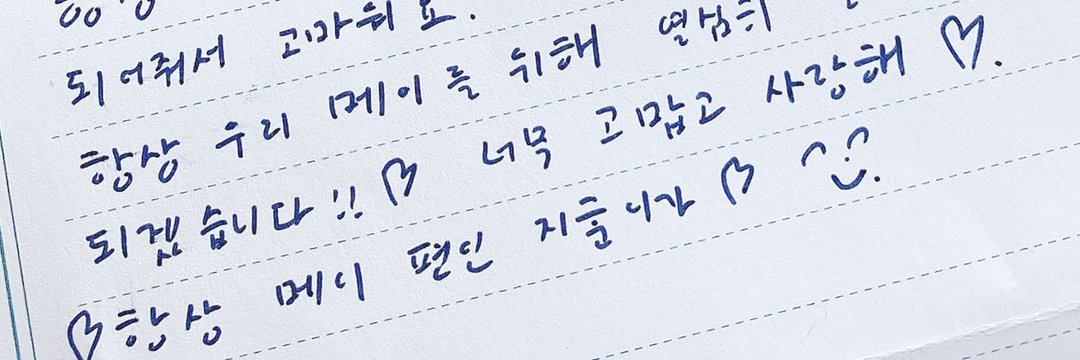 항상
되어줘서 고마워요.
항상 우리 메이를 위해 열심히
되겠습니다!! ♡ 너무 고맙고 사랑해 ♡.
♡항상 메이 편인 지훈이가 ♡